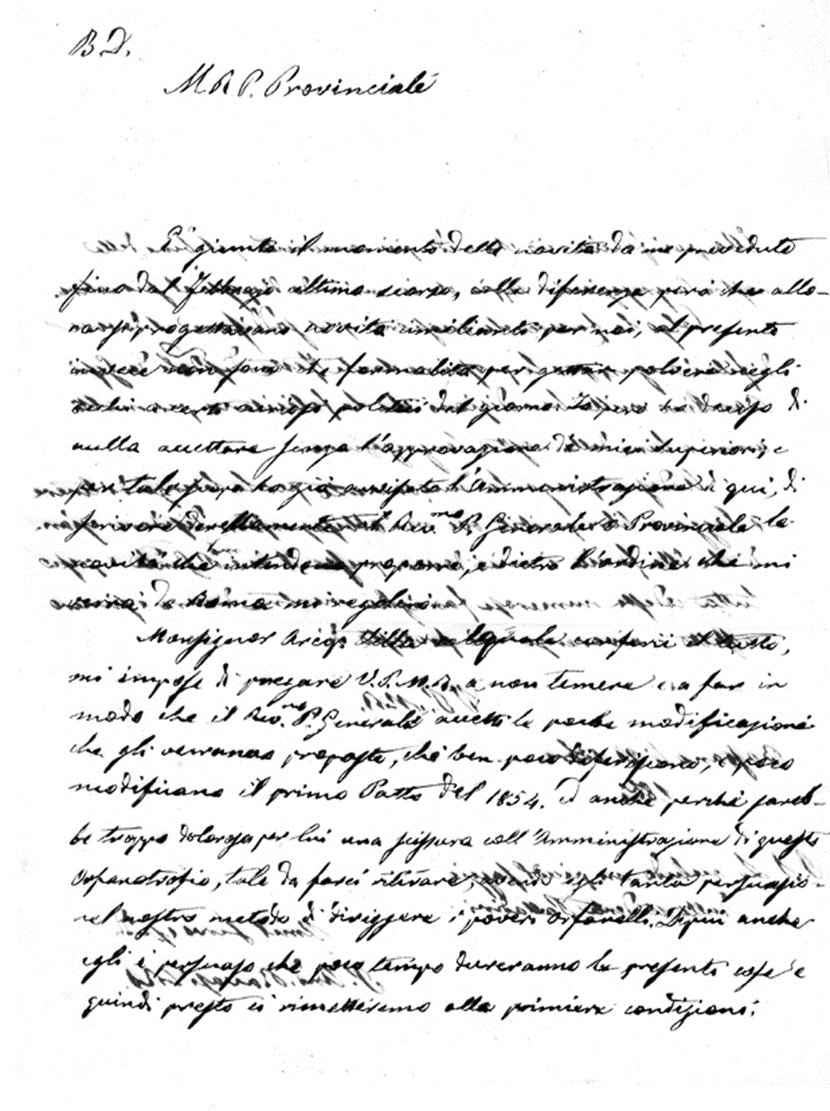 B.D.
M. R. P. Provinciale
È giunto il momento delle novità da me preveduto
fino dal Febbrajo ultimo scorso, colla differenza però che allo-
ra si progettavano novità umilianti per noi, al presente
invece non sono che formalità per gettar polvere negli
occhi a certi politici del giorno. Io però ho deciso di
nulla accettare senza l'approvazione de' miei Superiori; e
per tale ho già avvisata l'Amministrazione di qui, di
scrivere direttamente al Rev.mo P. Generale e Provinciale le
novità che intendono proporre, e dietro l'ordine che mi
verrà da Roma mi regolerò.
Monsignor Arciv. al quale conferii il tutto,
mi impose di pregare V. P. M. R. a non temere e a far in
modo che il Rev.mo P. Generale accetti le poche modificazioni
che gli verranno proposte, chè ben poco differiscono, e poco
modificano il primo Patto del 1854. ed anche perchè sareb-
be troppo dolorosa per lui una scissura coll'Amministrazione di questo
Orfanotrofio, tale da farci ritirare, avendo egli tanta persuasio-
nel nostro metodo di diriggere i poveri orfanelli. Di più anche
egli è persuaso che poco tempo dureranno le presenti cose e
quindi presto ci rimetteremo alla primiera condizione.